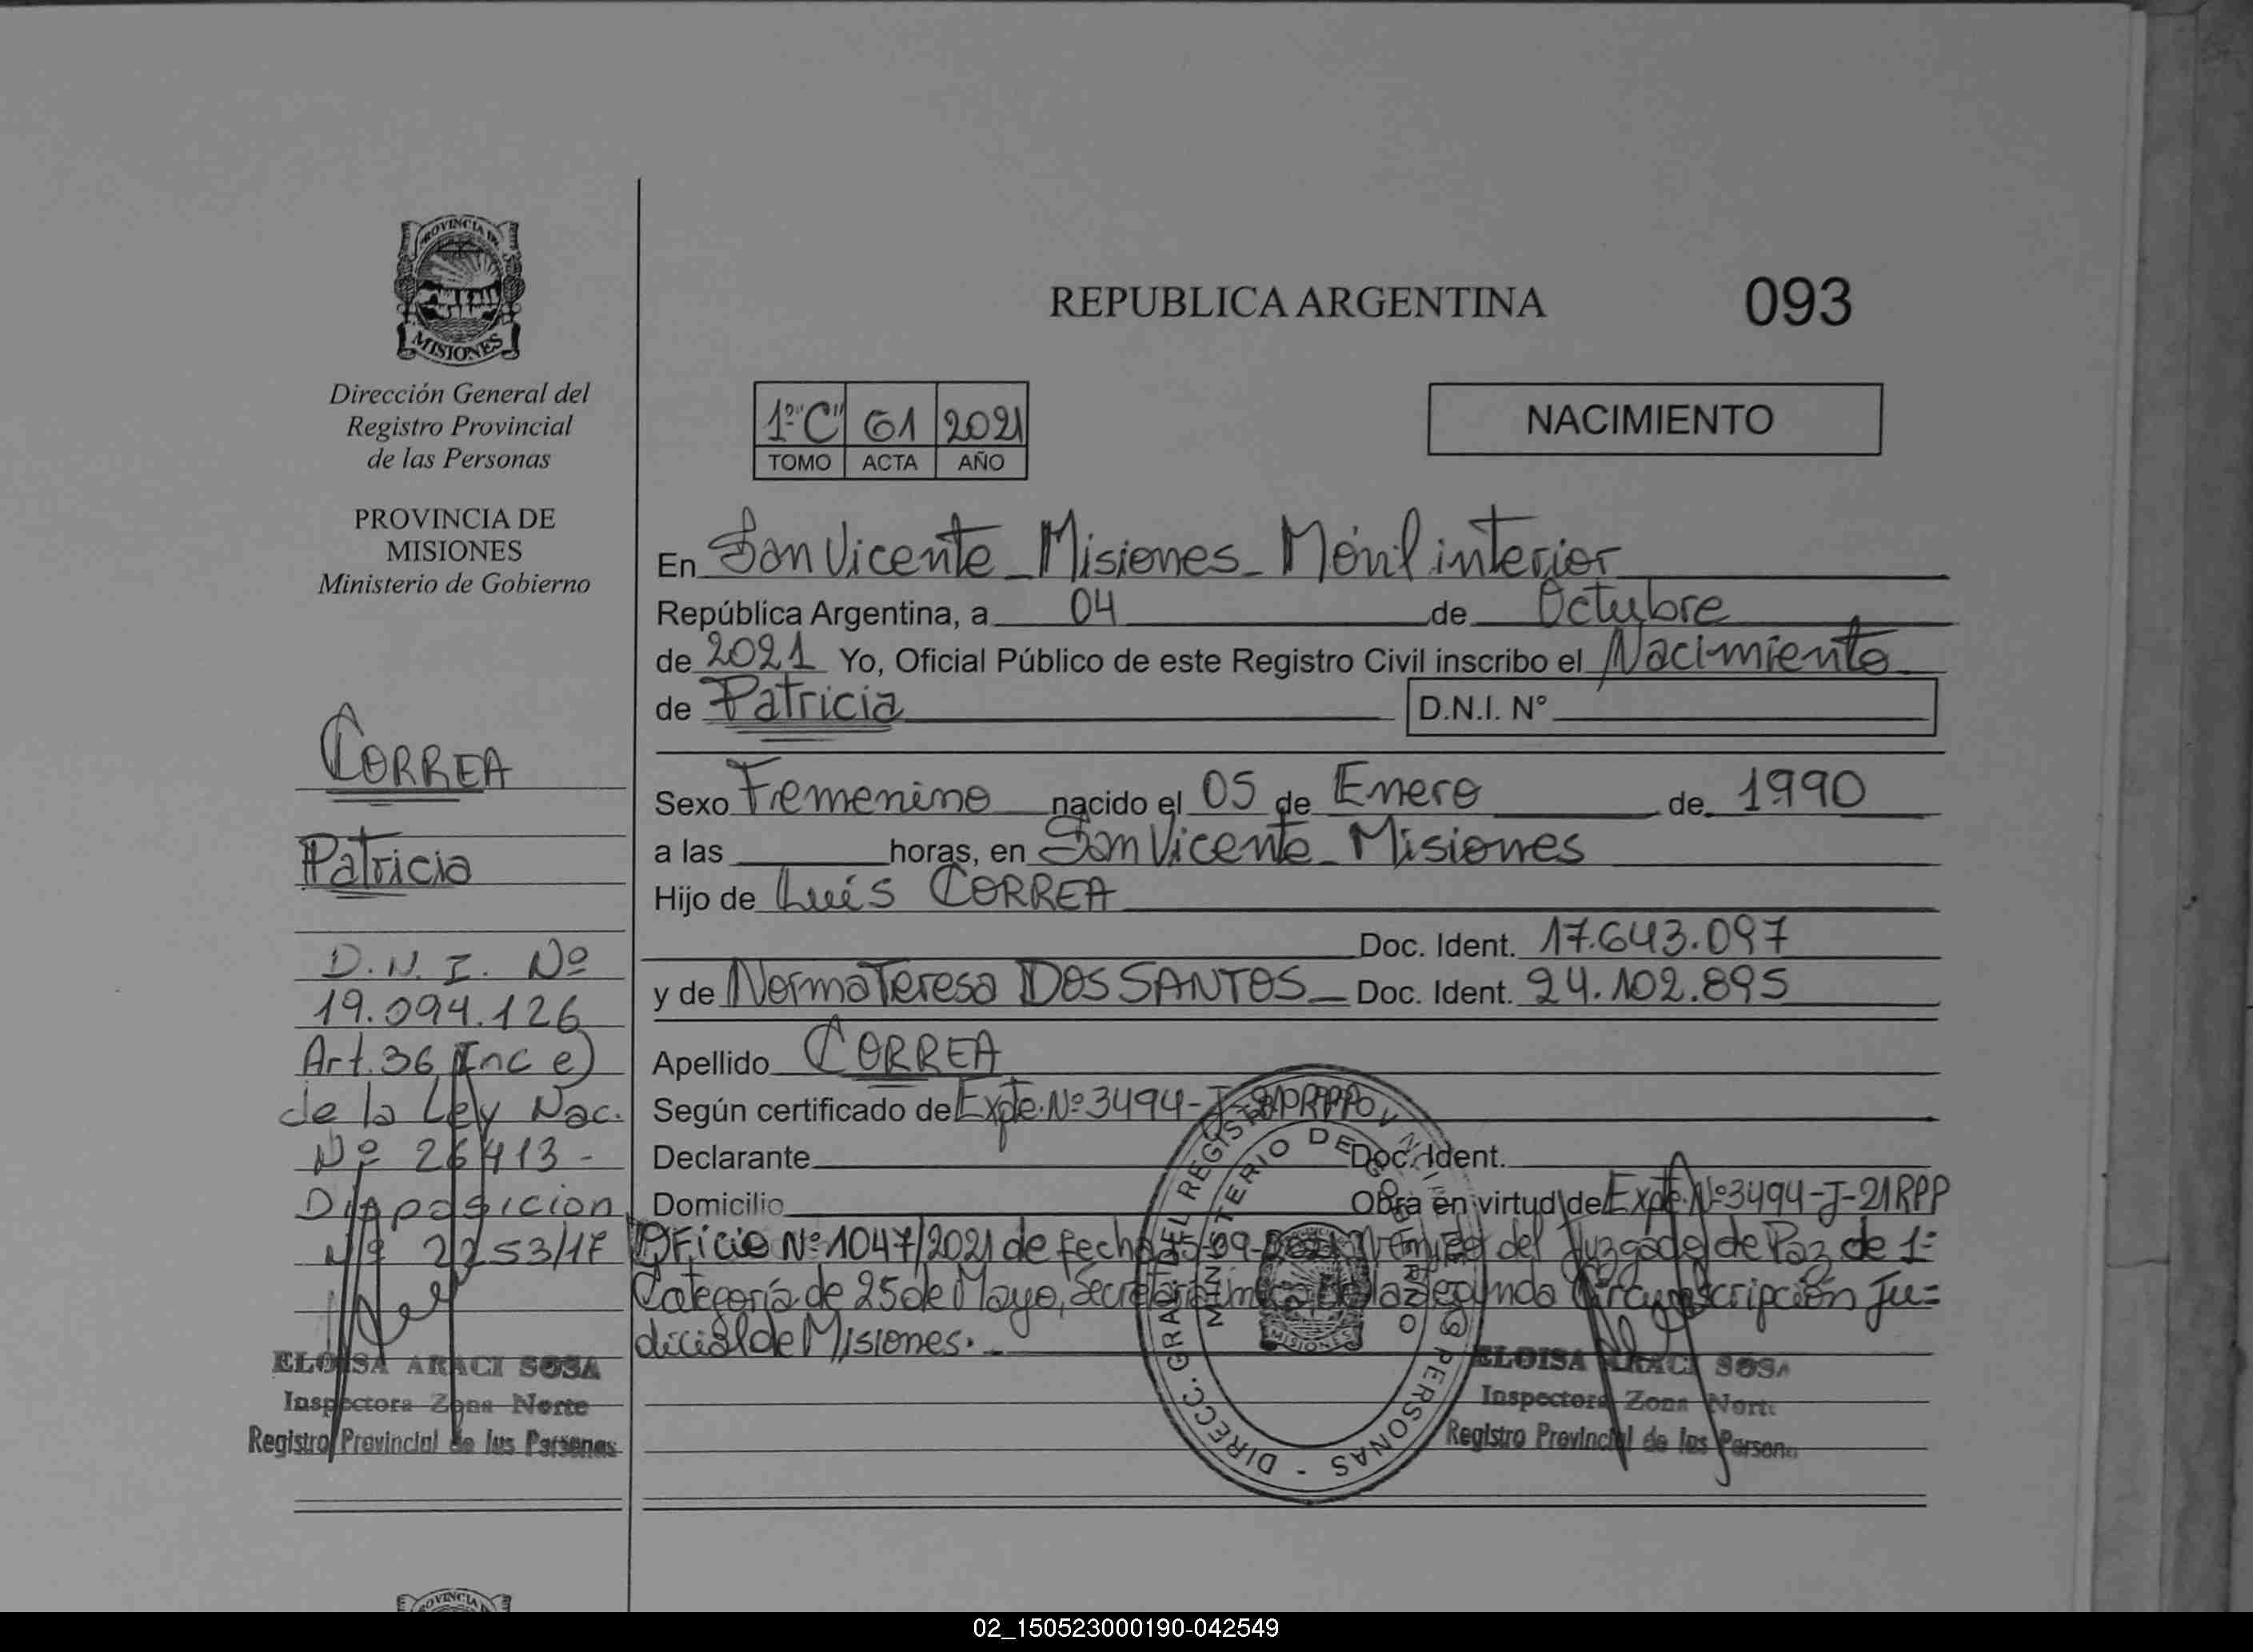 PROVINCIA DE
MISIONES
Dirección General del
Registro Provincial
de las Personas
PROVINCIA DE
MISIONES
Ministerio de Gobierno
CORREA
Patricia
D.N.I. Nº
19.094.126
Art.36 Inc e)
de la Ley Nac.
Nº 26413 -
Disposicion
Nº 2253/17
ELOISA ARACI SOSA
Inspectora Zona Norte
Registro Provincial de las Personas
REPUBLICA ARGENTINA 093
1º"C" 61 2021
TOMO ACTA AÑO
NACIMIENTO
En San Vicente - Misiones - Móvil interior
República Argentina, a 04 de Octubre
de 2021 Yo, Oficial Público de este Registro Civil inscribo el Nacimiento
de Patricia D.N.I. N°
Sexo Femenino nacido el 05 de Enero de 1990
a las horas, en San Vicente - Misiones
Hijo de Luis CORREA
Doc. Ident. 17.643.097
y de Norma Teresa DOS SANTOS Doc. Ident. 24.102.895
Apellido CORREA
Según certificado de Expte. Nº 3494-J-21 RPP
Declarante Doc. Ident.
Domicilio Obra en virtud de Expte. Nº 3494-J-21 RPP
Oficio Nº 1047/2021 de fecha del Juzgado de Paz de 1º
Categoría de 25 de Mayo, Secretaria de la Segunda Circunscripción Ju=
dicial de Misiones.-
DIRECC. GRAL. DEL REGISTRO PROVINCIAL DE LAS PERSONAS -
MINISTERIO DE GOBIERNO
MISIONES
ELOISA ARACI SOSA
Inspectora Zona Norte
Registro Provincial de las Person
PROVINCIA
02_150523000190-042549